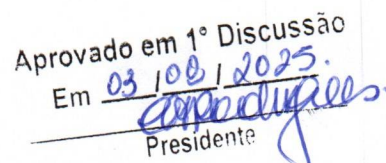 Aprovado em 1° Discussão
Em 03 / 08 / 2025.
Presidente